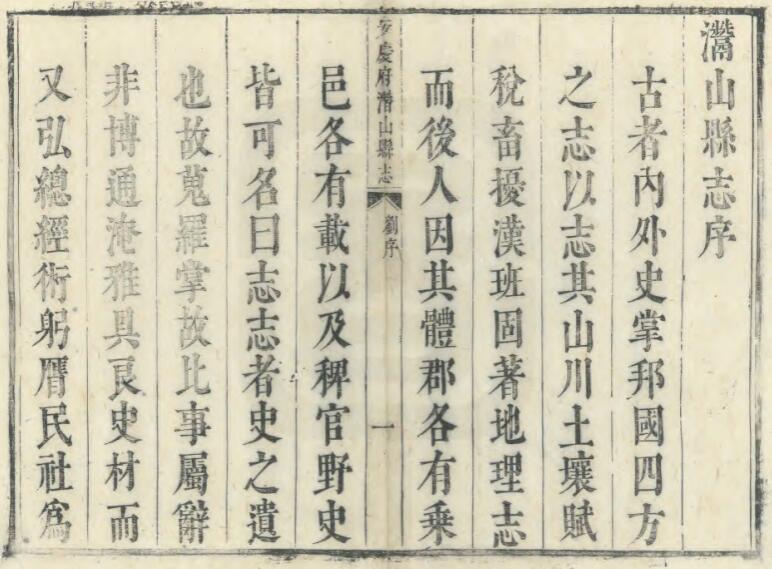 灊山縣志序
古者內外史掌邦國四方
之志以志其山川土壤賦
稅畜擾漢班固著地理志
而後人因其體郡各有乘
安慶府濳山縣志
劉序
一
邑各有載以及稗官野史
皆可名曰志志者史之遺
也故蒐羅掌故比事屬辭
非博通淹雅具良史材而
又弘總經術躬膺民社爲